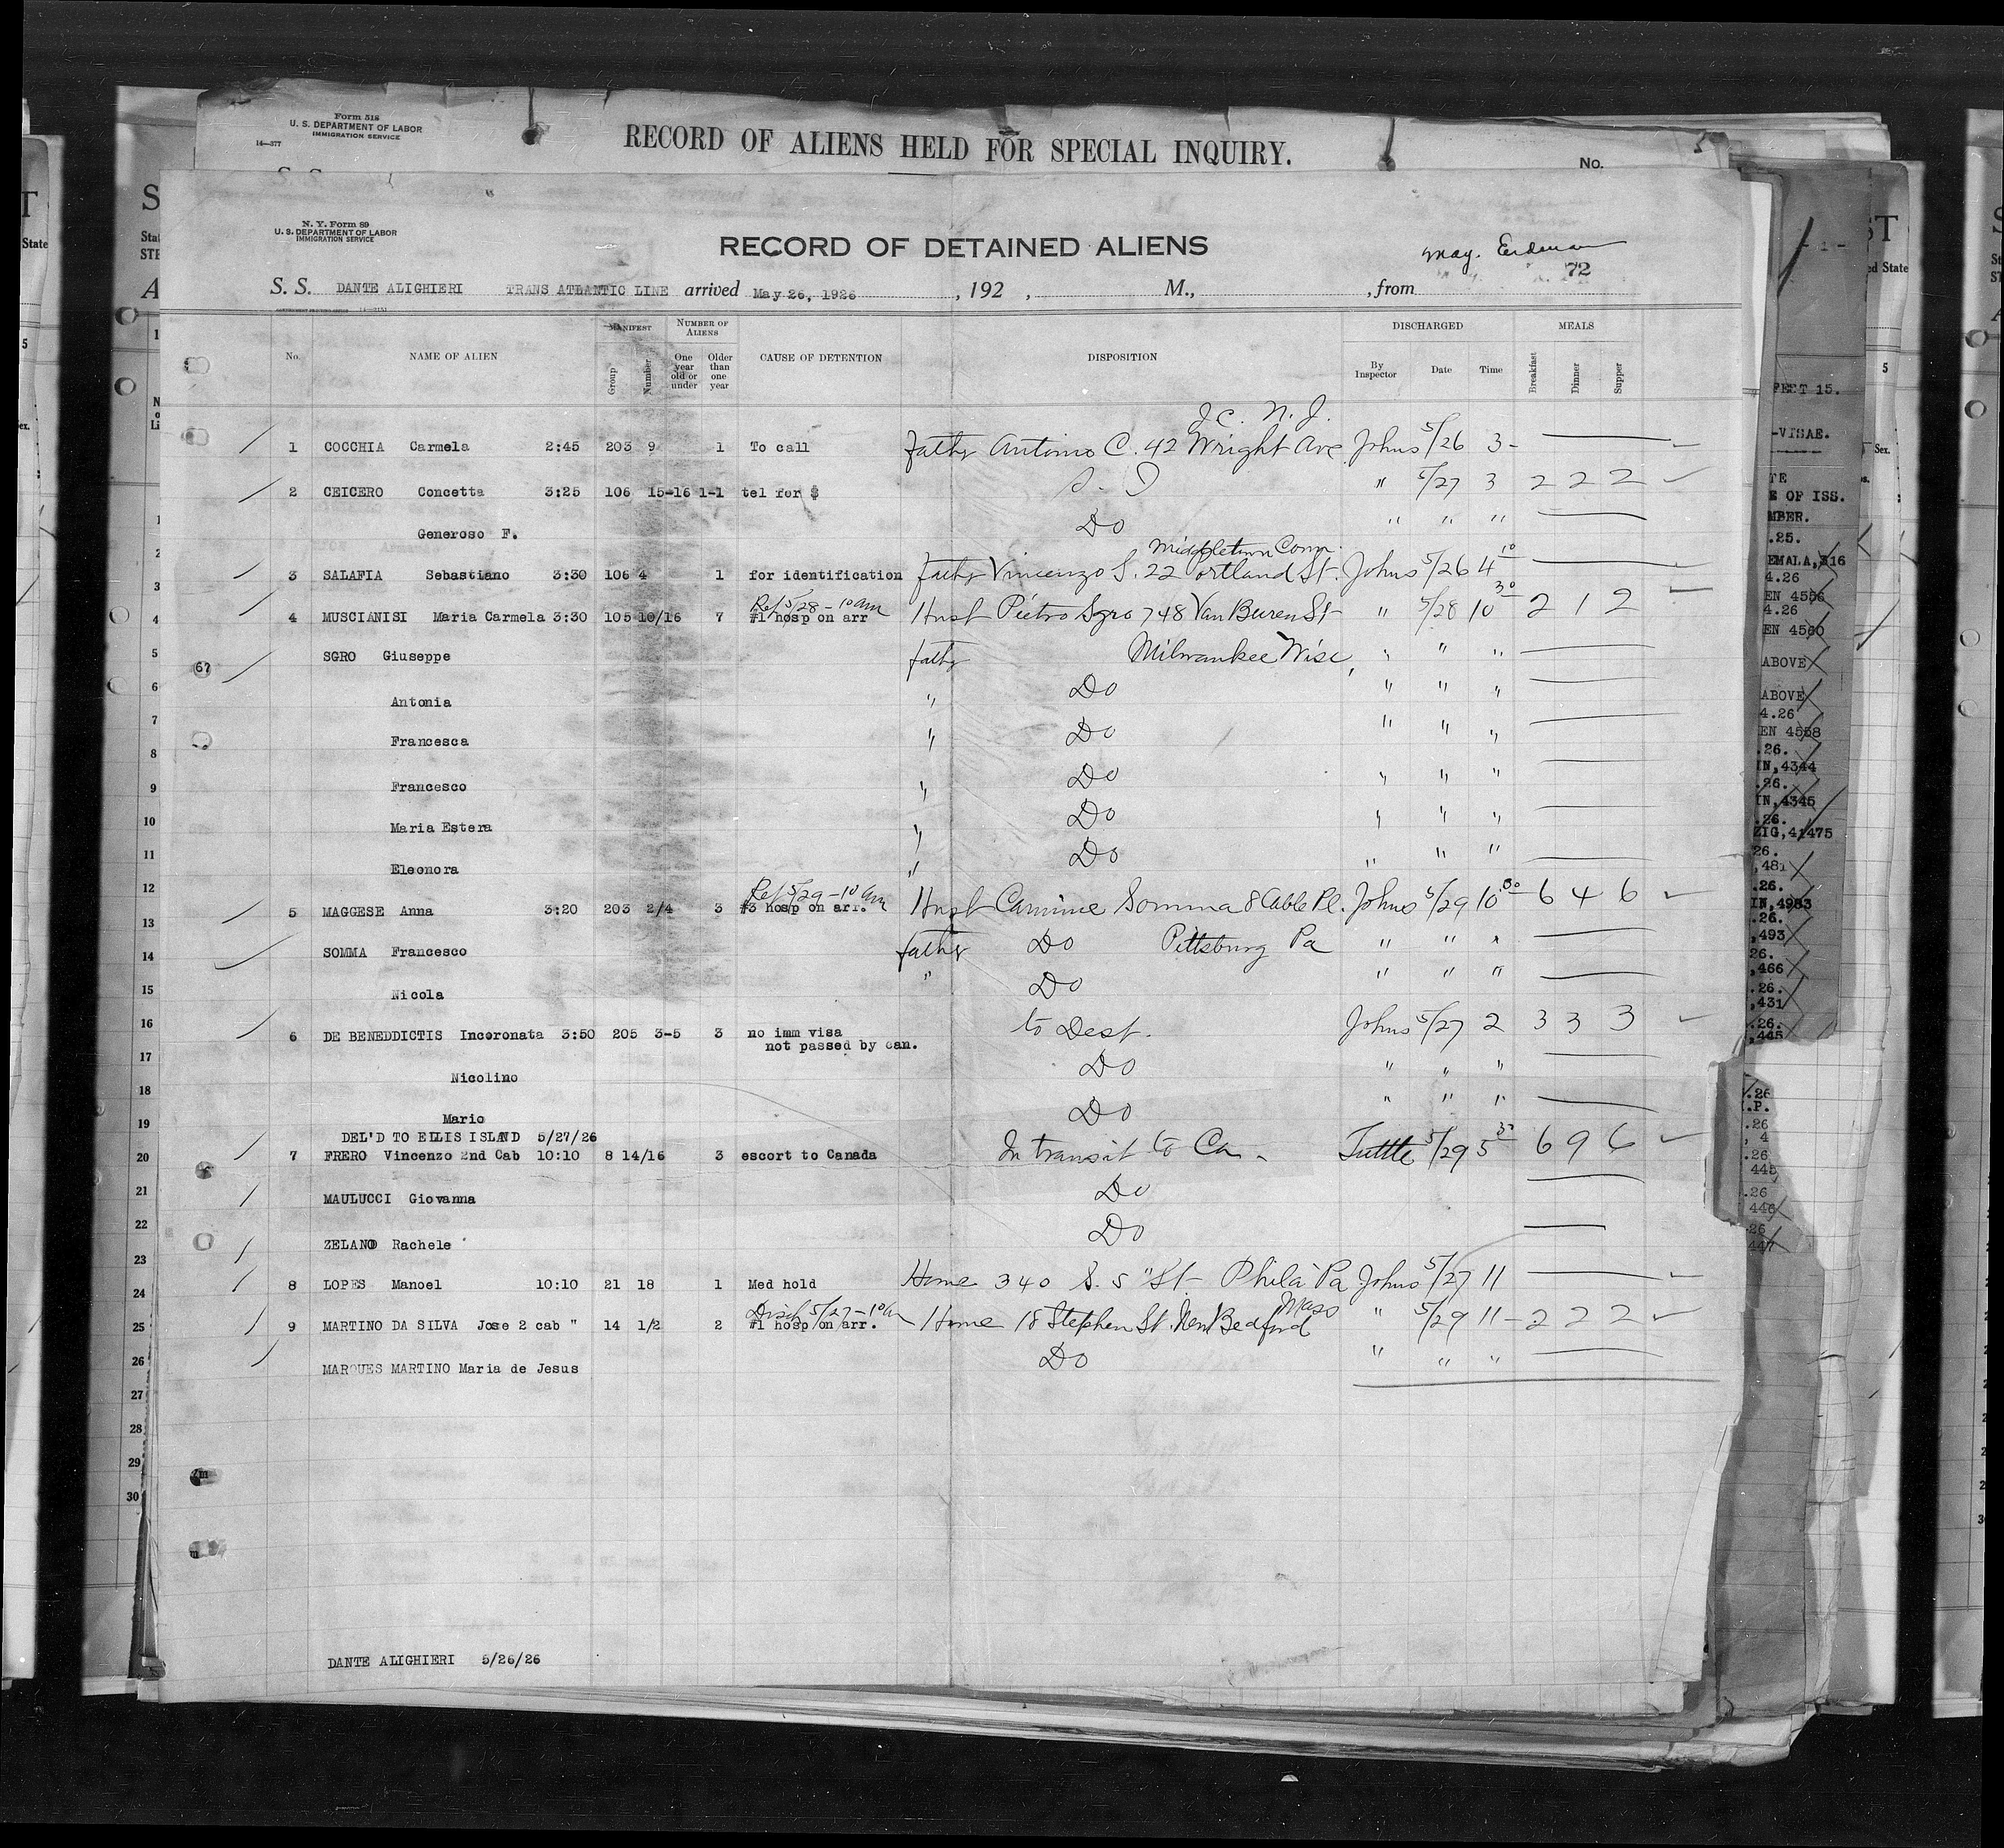 Form 518
U. S. DEPARTMENT OF LABOR
IMMIGRATION SERVICE
14—377
RECORD OF ALIENS HELD FOR SPECIAL INQUIRY.
No.
N. Y. Form 89
U. S. DEPARTMENT OF LABOR
IMMIGRATION SERVICE
RECORD OF DETAINED ALIENS
72
S. S. DANTE ALIGHIERI TRANS ATLANTIC LINE arrived May 26, 1926 , 192 , M., , from
MANIFEST NUMBER OF ALIENS DISCHARGED MEALS
No. NAME OF ALIEN Group Number One year old or under Older than one year CAUSE OF DETENTION DISPOSITION By Inspector Date Time Breakfast Dinner Supper
J C. N. J.
1 COCCHIA Carmela 2:45 203 9 1 To call Father Antonio C. 42 Wright Ave Johns 5/26 3-
2 CEICERO Concetta 3:25 106 15-16 1-1 tel for $ S. I " 5/27 3 2 2 2
Generoso F. Do " " "
Middletown Conn.
3 SALAFIA Sebastiano 3:30 106 4 1 for identification Father Vincenzo S. 22 Portland St. Johns 5/26 4 10
Rel 5/28 - 10 am
4 MUSCIANISI Maria Carmela 3:30 105 10/16 7 #1 hosp on arr Husb Pietro Sgro 748 Van Buren St " 5/28 10 30 2 1 2
SGRO Giuseppe father Milwaukee Wisc, " " "
Antonia " Do " " "
Francesca " Do " " "
Francesco " Do " " "
Maria Estera " Do " " "
Eleonora " Do " " "
Rel 5/29 - 10 am
5 MAGGESE Anna 3:20 203 2/4 3 #3 hosp on arr. Husb Carmine Somma 8 Able Pl. Johns 5/29 10 50 6 4 6
SOMMA Francesco father Do Pittsburg Pa " " "
Nicola " Do " " "
6 DE BENEDDICTIS Incoronata 3:50 205 3-5 3 no imm visa to Dest. Johns 5/27 2 3 3 3
not passed by can.
Nicolino Do " " "
Mario Do " " "
DEL'D TO ELLIS ISLAND 5/27/26
7 FRERO Vincenzo 2nd Cab 10:10 8 14/16 3 escort to Canada In transit to Ca. Tuttle 5/29 5 30 6 9 6
MAULUCCI Giovanna Do
ZELANO Rachele Do
8 LOPES Manoel 10:10 21 18 1 Med hold Home 340 S. 5" St- Phila Pa Johns 5/27 11
Disch 5/27 - 10 am Mass
9 MARTINO DA SILVA Jose 2 cab " 14 1/2 2 #1 hosp on arr. Home 18 Stephen St. New Bedford " 5/29 11 - 2 2 2
MARQUES MARTINO Maria de Jesus Do " " "
DANTE ALIGHIERI 5/26/26